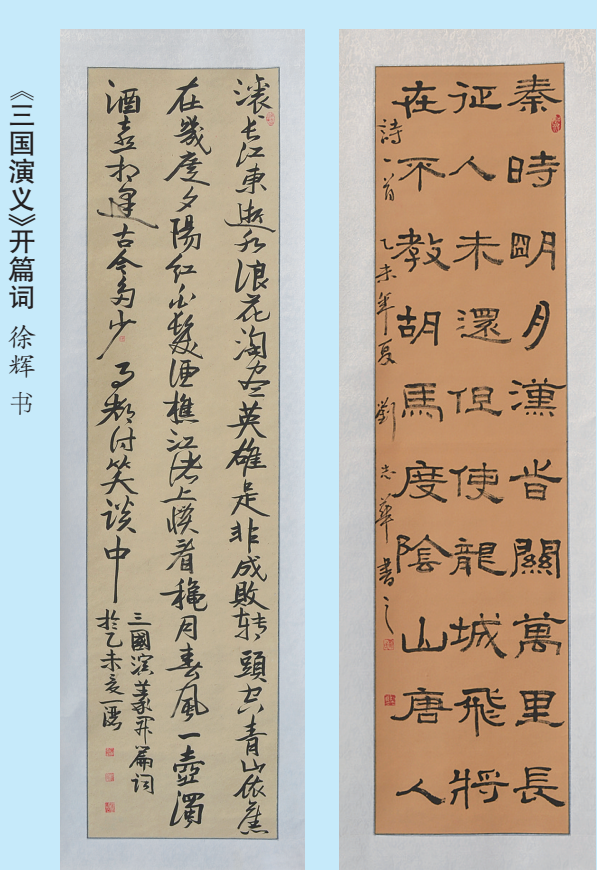 《三国演义》开篇词 徐辉 书
滚〻长江東逝水浪花淘尽英雄是非成敗转頭空青山依舊
在幾度夕陽红白髮渔樵江渚上惯看穐月春風一壺濁
酒喜相逢古今多少事都付笑谈中
三國演義开篇词
於乙未夏一
秦時朙月漢旹關萬里長
征人未還但使龍城飛將
在不教胡馬度陰山唐人
詩一首 乙未年夏 劉志華書之